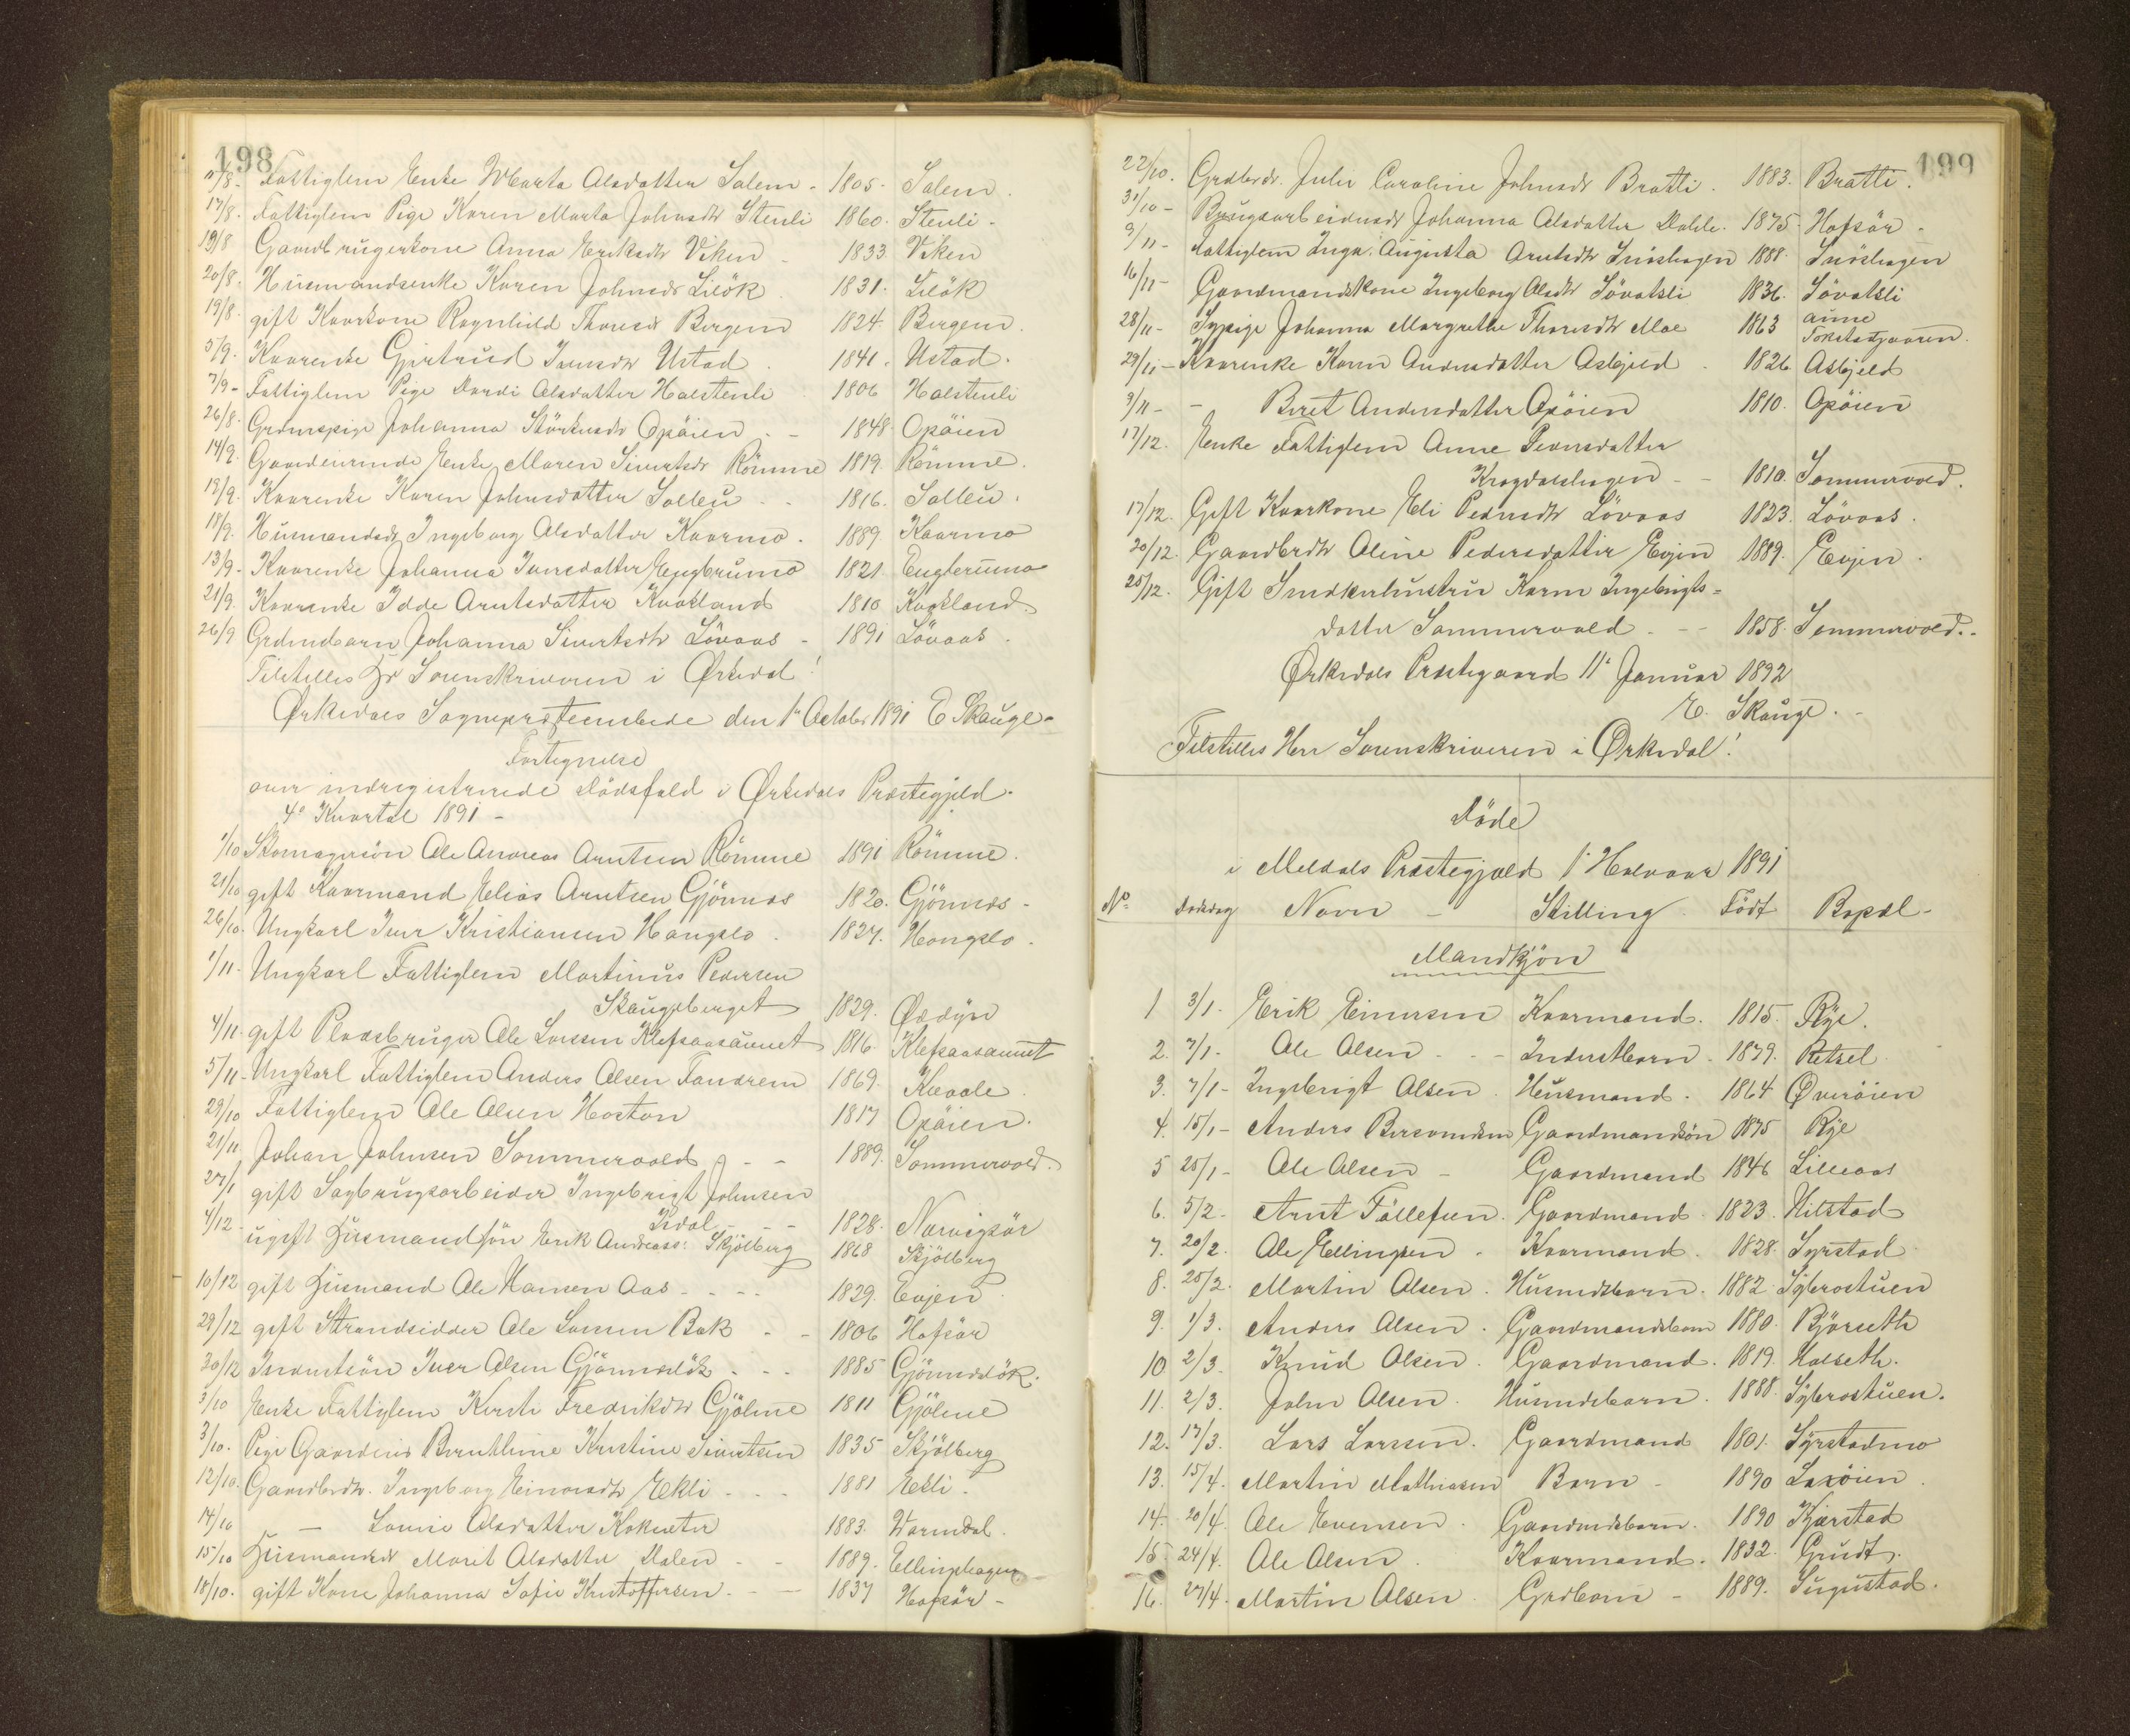 198
11/8 - Fattiglem Enke Marta Olsdatter Solem - 1805. Solem.
17/8. Fattiglem Pige Karen Marta Johnsdtr Stenli 1860. Stenli -
19/8 Gaardbrugerkone Anna Eriksdtr Viken - 1833. Viken
20/8. Husmandsenke Karen Johnsdr Liløk 1831. Liløk
19/8. gift Kaarkone Ragnhild Thoresdr Bergem 1824 Bergem.
5/9. Kaarenke Gjertrud Iversdtr Ustad. 1841. Ustad.
7/9 - Fattiglem Pige Dordi Olsdatter Holstenli 1806 Holstenli
26/8. Grdmspige Johanna Størkersdr Opøien - 1848 Opøien
14/9. Gaardeierinde Enke Maren Sivertsdr Rømme 1819. Rømme.
19/9. Kaarenke Karen Johnsdatter Solleu - - 1816. Solleu.
18/9. Husmandsdr Ingeborg Olsdatter Kaarmo. 1889 Kaarmo
13/9 - Kaarenke Johanna Iversdatter Engbrumo 1821 Engbrumo
21/9. Kaarenke Idde Arntsdatter Kvakland 1810 Kvakland
26/9 Grdmdbarn Johanna Sivertsdtr Løvaas - 1891 Løvaas.
Tilstilles Hr Sorenskriveren i Ørkedal!
Ørkedals Sogneprestembede den 1ste October 1891 E Skauge -
Fortegnelse
over indregistrerede Dødsfald i Ørkedals Præstegjeld.
4de Kvartal 1891 -
1/10 Skomagersøn Ole Andreas Arntsen Rømme 1891 Rømme.
21/10 gift Kaarmand Elias Arntsen Gjønnes 1820. Gjønnes -
26/10. Ungkarl Iver Kristiansen Hangslo. 1827. Hongslo.
1/11 - Ungkarl Fattiglem Martinus Pedersen
Skaugeberget 1829.
4/11. gift Pladsbruger Ole Larsen Klefsaasaunet 1816. Klefsaasaunet
5/11 - Ungkarl Fattiglem Anders Olsen Fandrem 1869. Kvaale.
29/10 Fattiglem Ole Olsen Hoston 1817 Opøien.
21/11 Johan Johnsen Sommervold - - 1889. Sommervold.
27/1 gift Sagbrugsarbeider Ingebrigt Johnsen
Isdal - - 1828. Narvigsør
4/12 - ugift Husmandssøn Erik Andreass. Skjølberg 1868 Skjølberg
10/12 gift Husmand Ole Hansen Aas - - - - 1829. Evjen.
29/12 gift Strandsidder Ole Larsen Bak - - 1806 Hofsør
30/12 Inderstsøn Iver Olsen Gjønnesløk - - - 1885 Gjønnesløk.
3/10 Enke Fattiglem Kirsti Fredriksdtr Gjølme 1811 Gjølme
3/10. Pige Gaardeier Bernthine Kristine Sivertsen 1835 Skjølberg
12/10. Gaardbrdtr. Ingeborg Einarsdtr Ekli - - - 1881 Ekli -
14/10 — Lovise Olsdatter Kokseter 1883. Vormdal.
15/10 Husmandsdr Marit Olsdatter Dalen - - 1889. Ellingshagen
18/10. gift Kone Johanna Sofie Kristoffersen - — 1837 Hofsør -
199
22/10. Grdbrdr. Julie Caroline Johnsdr Bratli. 1883. Bratli.
31/10 - Brugsarbeidersdr Johanna Olsdatter Dahle. 1875. Hofsør -
9/11 - Fattiglem Inga Augusta Arntsdtr Snøshagen 1888. Snøshagen
16/11 - Gaardmandskone Ingeborg Olsdtr Løvatsli 1836. Løvatsli
28/11 - Sypige Johanna Margrethe Thoresdtr Moe 1863 anne Tokstadgaarden.
29/11 - Kaarenke Karen Andersdatter Asbjeld - 1826. Asbjeld
3/11 - - Beret Andersdatter Opøien 1810. Opøien
17/12. Enke Fattiglem Anne Iversdatter
Krogdalshagen - - 1810. Sommervold.
17/12. Gift Kaarkone Eli Pedersdtr Løvaas 1823. Løvaas.
20/12. Gaardbrdtr Oline Pedersdatter Evjen 1889. Evjen.
25/12. Gift Snedkerhustru Karen Ingebrigts=
datter Sommervold - - - 1858. Sommervold. -
Ørkedals Præstegaard 11te Januar 1892
E. Skauge. -
Tilstilles Herr Sorenskriveren i Ørkedal!
Døde
i Meldals Præstegjæld 1ste Halvaar 1891
No. Dødsdag Navn - Stilling. Født Bopæl -
Mandkjøn
1 3/1. Erik Einersen Kaarmand. 1815. Rye.
2. 7/1 - Ole Olsen - - - Inderstbarn. 1879. Retsel
3. 7/1 - Ingebrigt Olsen. Husmand. 1864 Øverøien
4. 15/1 - Anders Bersvendsen Gaardmandssøn 1875 Rye
5 25/1 - Ole Olsen - Gaardmand 1846 Lilleaas
6. 5/2 - Arnt Tøllefsen. Gaardmand. 1823. Hilstad
7. 20/2. Ole Ellingsen - Kaarmand. 1828. Syrstad
8. 25/2. Martin Olsen. Husmdsbarn. 1882. Sybrostuen
9. 1/3. Anders Olsen. Gaardmandsbarn 1880. Bjørseth
10 2/3. Knud Olsen. Gaardmand. 1819. Halseth.
11. 2/3. John Olsen. Husmdsbarn. 1888. Sybrostuen.
12. 17/3. Lars Larssen. Gaardmand 1801. Syrstadmo
13. 15/4. Martin Mathiasen Barn - 1890 Laxøien.
14. 20/4. Ole Evensen. Gaardmdsbarn. 1890 Kjerstad
15. 24/4. Ole Olsen. Kaarmand. 1832. Grudt.
16. 27/4. Martin Olsen. Grdbarn - 1889.